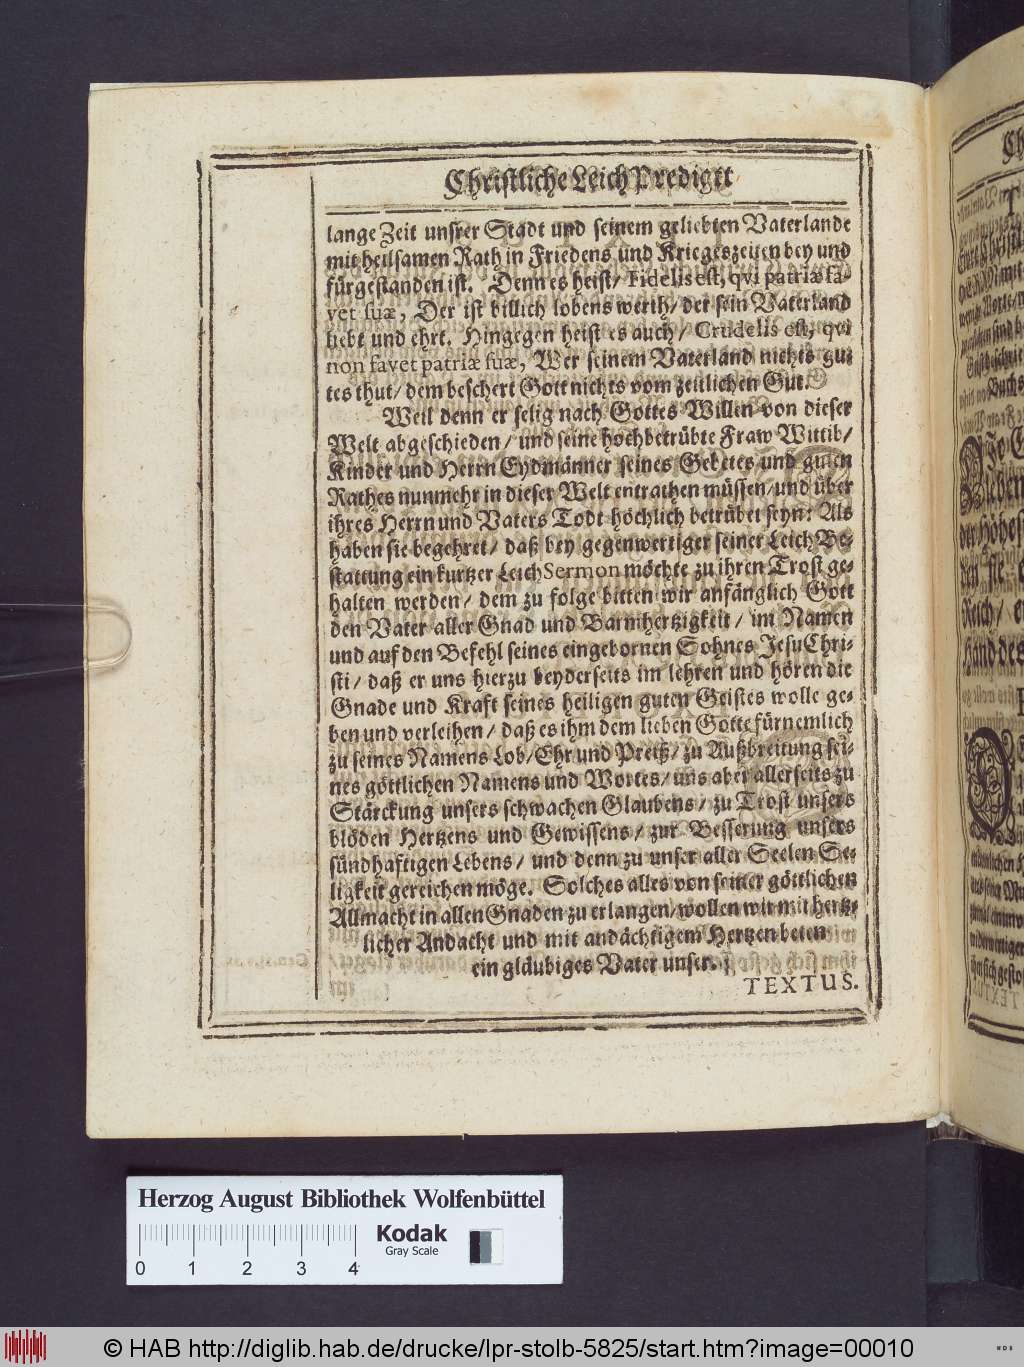 Christliche LeichPredigt
lange Zeit unsrer Stadt und seinem geliebten Vaterlande
mit heilsamen Rath in Friedens und Krieges zeiten bey und
fürgestanden ist. Denn es heist/ Fidelis est, qvi patriæ fa-
vet suæ, Der ist billich lobens werth/ der sein Vaterland
liebt und ehrt. Hingegen heist es auch/ Crudelis est, qvi
non favet patriæ suæ, Wer seinem Vaterland nichts gu-
tes thut/ dem beschert Gott nichts vom zeitlichen Gut.
Weil denn er selig nach Gottes Willen von dieser
Welt abgeschieden/ und seine hochbetrübte Fraw Wittib/
Kinder und Herrn Eydmänner seines Gebetes und guten
Rathes nunmehr in dieser Welt entrathen müssen/ und über
ihres Herrn und Vaters Todt höchlich betrübet seyn: Als
haben sie begehret/ daß bey gegenwertiger seiner Leich Be-
stattung ein kurtzer LeichSermon möchte zu ihren Trost ge-
halten werden/ dem zu folge bitten wir anfänglich Gott
den Vater aller Gnad und Barmhertzigkeit/ im Namen
und auf den Befehl seines eingebornen Sohnes Jesu Chri-
sti/ daß er uns hierzu beyderseits im lehren und hören die
Gnade und Kraft seines heiligen guten Geistes wolle ge-
ben und verleihen/ daß es ihm dem lieben Gotte fürnemlich
zu seines Namens Lob/ Ehr und Preiß/ zu Außbreitung sei-
nes göttlichen Namens und Wortes/ uns aber allerseits zu
Stärckung unsers schwachen Glaubens/ zu Trost unsers
blöden Hertzens und Gewissens/ zur Besserung unsers
sündhaftigen Lebens/ und denn zu unser aller Seelen Se-
ligkeit gereichen möge. Solches alles von seiner göttlichen
Allmacht in allen Gnaden zu erlangen/ wollen wir mit hertz-
licher Andacht und mit andächtigem Hertzen beten
ein gläubiges Vater unser.
TEXTUS.
Herzog August Bibliothek Wolfenbüttel
Kodak
Gray Scale
0 1 2 3 4
© HAB http://diglib.hab.de/drucke/lpr-stolb-5825/start.htm?image=00010